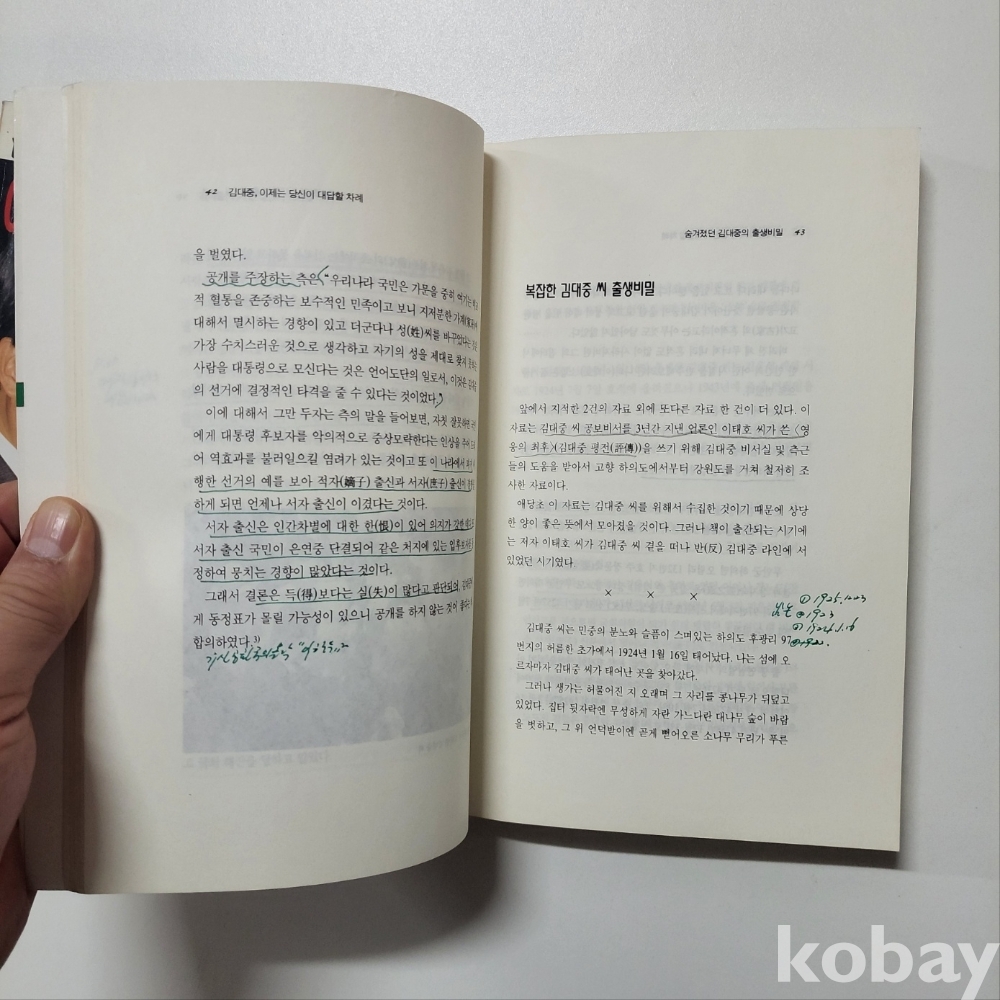 42 김대중, 이제는 당신이 대답할 차례
을 벌였다.
공개를 주장하는 측은 "우리나라 국민은 가문을 중히 여기는
적 혈통을 존중하는 보수적인 민족이고 보니 지저분한 가계
대해서 멸시하는 경향이 있고 더군다나 성(姓)씨를 바꾸었다는
가장 수치스러운 것으로 생각하고 자기의 성을 제대로 찾지
사람을 대통령으로 모신다는 것은 언어도단의 일로서, 이것은
의 선거에 결정적인 타격을 줄 수 있다는 것이었다.
이에 대해서 그만 두자는 측의 말을 들어보면, 자칫 잘못하면
에게 대통령 후보자를 악의적으로 중상모략한다는 인상을 주어
어 역효과를 불러일으킬 염려가 있는 것이고 또 이 나라에서
행한 선거의 예를 보아 적자(嫡子) 출신과 서자(庶子) 출신이
하게 되면 언제나 서자 출신이 이겼다는 것이다.
서자 출신은 인간차별에 대한 한(恨)이 있어 의지가 강한
서자 출신 국민이 은연중 단결되어 같은 처지에 있는 입후보자를
정하여 뭉치는 경향이 많았다는 것이다.
그래서 결론은 득(得)보다는 실(失)이 많다고 판단되며
게 동정표가 몰릴 가능성이 있으니 공개를 하지 않는 것이
합의하였다.3)
숨겨졌던 김대중의 출생비밀 43
복잡한 김대중 씨 출생비밀
앞에서 지적한 2건의 자료 외에 또다른 자료 한 건이 더 있다. 이
자료는 김대중 씨 공보비서를 3년간 지낸 언론인 이태호 씨가 쓴 〈영
웅의 최후〉(김대중 평전(評傳))을 쓰기 위해 김대중 비서실 및 측근
들의 도움을 받아서 고향 하의도에서부터 강원도를 거쳐 철저히 조
사한 자료이다.
애당초 이 자료는 김대중 씨를 위해서 수집한 것이기 때문에 상당
한 양이 좋은 뜻에서 모아졌을 것이다. 그러나 책이 출간되는 시기에
는 저자 이태호 씨가 김대중 씨 곁을 떠나 반(反) 김대중 라인에 서
있었던 시기였다.
× × ×
① 1925.12.03
② 1923
③ 1924.1.16
김대중 씨는 민중의 분노와 슬픔이 스며있는 하의도 후광리 97
번지의 허름한 초가에서 1924년 1월 16일 태어났다. 나는 섬에 오
르자마자 김대중 씨가 태어난 곳을 찾아갔다.
그러나 생가는 허물어진 지 오래며 그 자리를 콩나무가 뒤덮고
있었다. 집터 뒷자락엔 무성하게 자란 가느다란 대나무 숲이 바람
을 벗하고, 그 위 언덕받이엔 곧게 뻗어오른 소나무 무리가 푸른
kobay